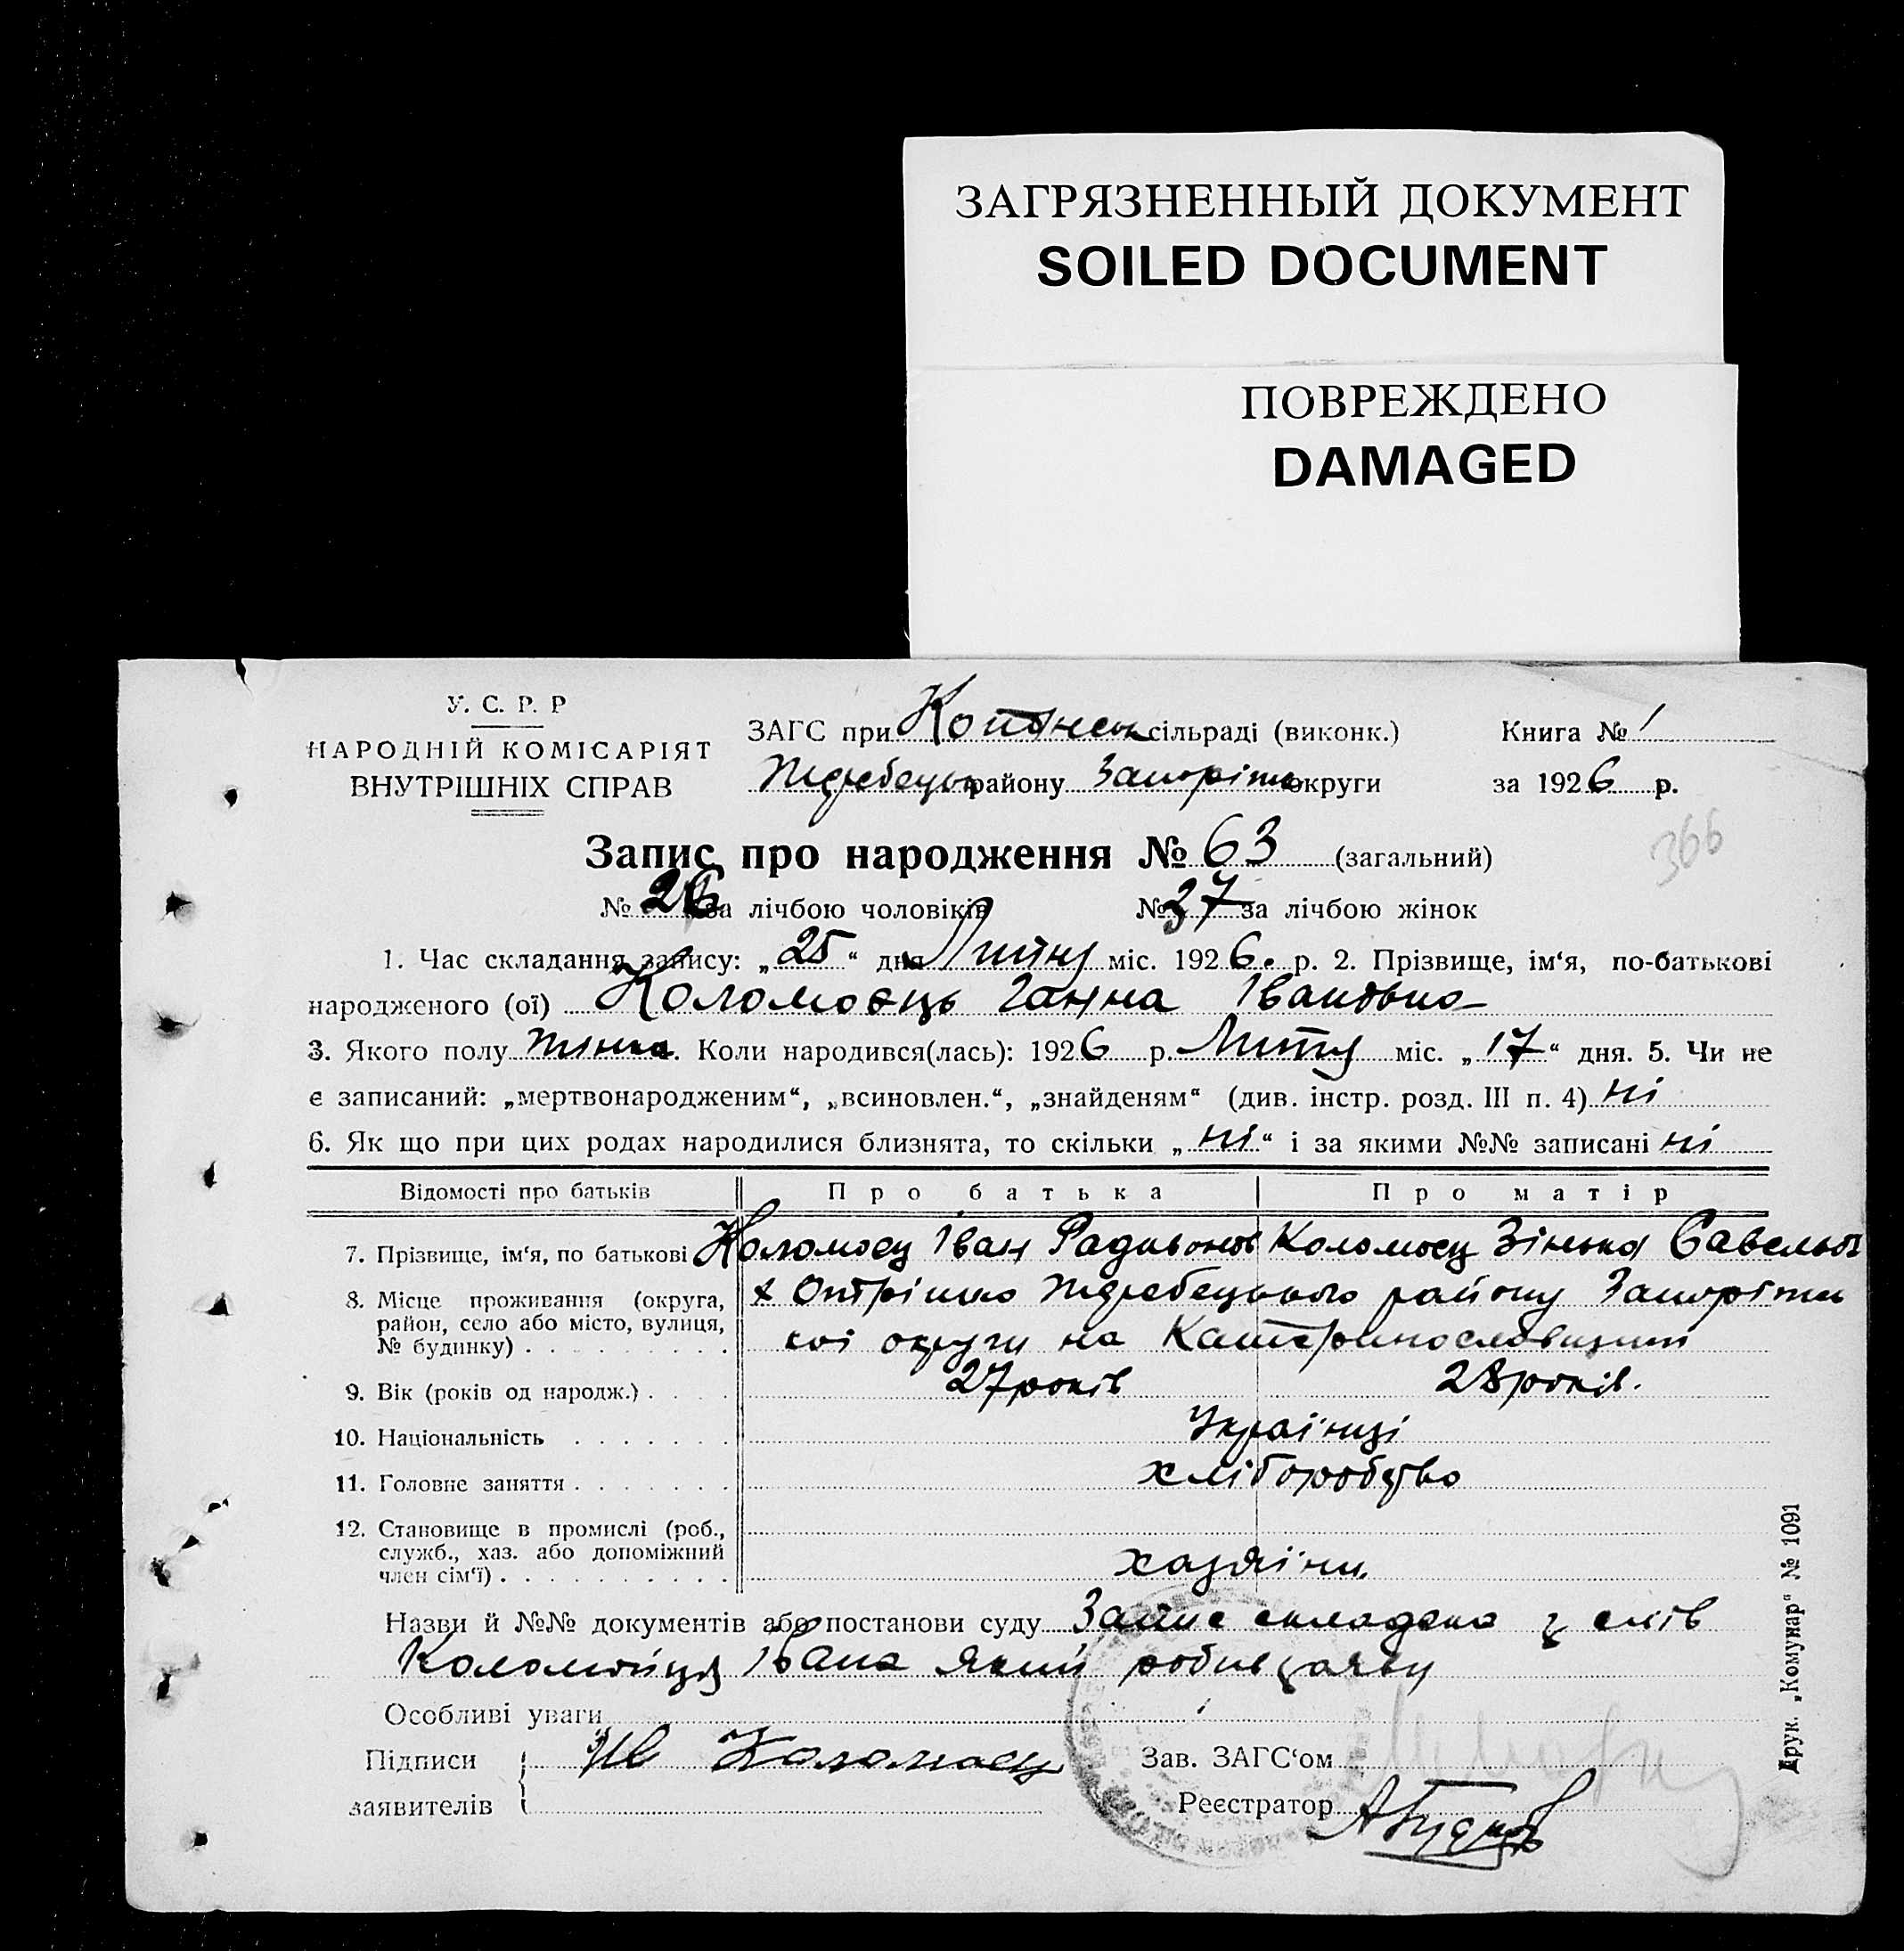 ЗАГРЯЗНЕННЫЙ ДОКУМЕНТ
SOILED DOCUMENT
ПОВРЕЖДЕНО
DAMAGED
У. С. Р. Р
НАРОДНІЙ КОМІСАРІЯТ
ВНУТРІШНІХ СПРАВ
ЗАГС при сільраді (виконк.)
Жеребецьк району Запоріжж округи
Книга № 1
за 1926 р.
Запис про народження № 63 (загальний)
366
№ 26 за лічбою чоловіків № 37 за лічбою жінок
1. Час складання запису: „25“ дня Лютня міс. 1926. р. 2. Прізвище, ім‘я, по-батькові
народженого (ої) Коломоєць Ганна Івановна
3. Якого полу жінка. Коли народився(лась): 1926 р. Лютня міс. „17“ дня. 5. Чи не
є записаний: „мертвонародженим“, „всиновлен.“, „знайденям“ (див. інстр. розд. III п. 4) ні
6. Як що при цих родах народилися близнята, то скільки „ні“ і за якими №№ записані ні
Відомості про батьків Про батька Про матір
7. Прізвище, ім‘я, по батькові Коломоєц Іван Радивонов Коломоєц Зінька Савельов
8. Місце проживання (округа,
район, село або місто, вулиця,
№ будинку)
х Омтрішко Жеребецького району Запоріжж
кої округи на Катеринославщині
9. Вік (років од народж.) 27 років 28 років.
10. Національність Українці
11. Головне заняття хліборобство
12. Становище в промислі (роб.,
служб., хаз. або допоміжний
член сім‘ї) хазяїни.
Назви й №№ документів або постанови суду Запис складено з слів
Коломийця Івана який робив заяву
Особливі уваги
Підписи
заявителів
Ів Коломоєц
Зав. ЗАГС‘ом
Реєстратор
Друк. „Комунар“ № 1091